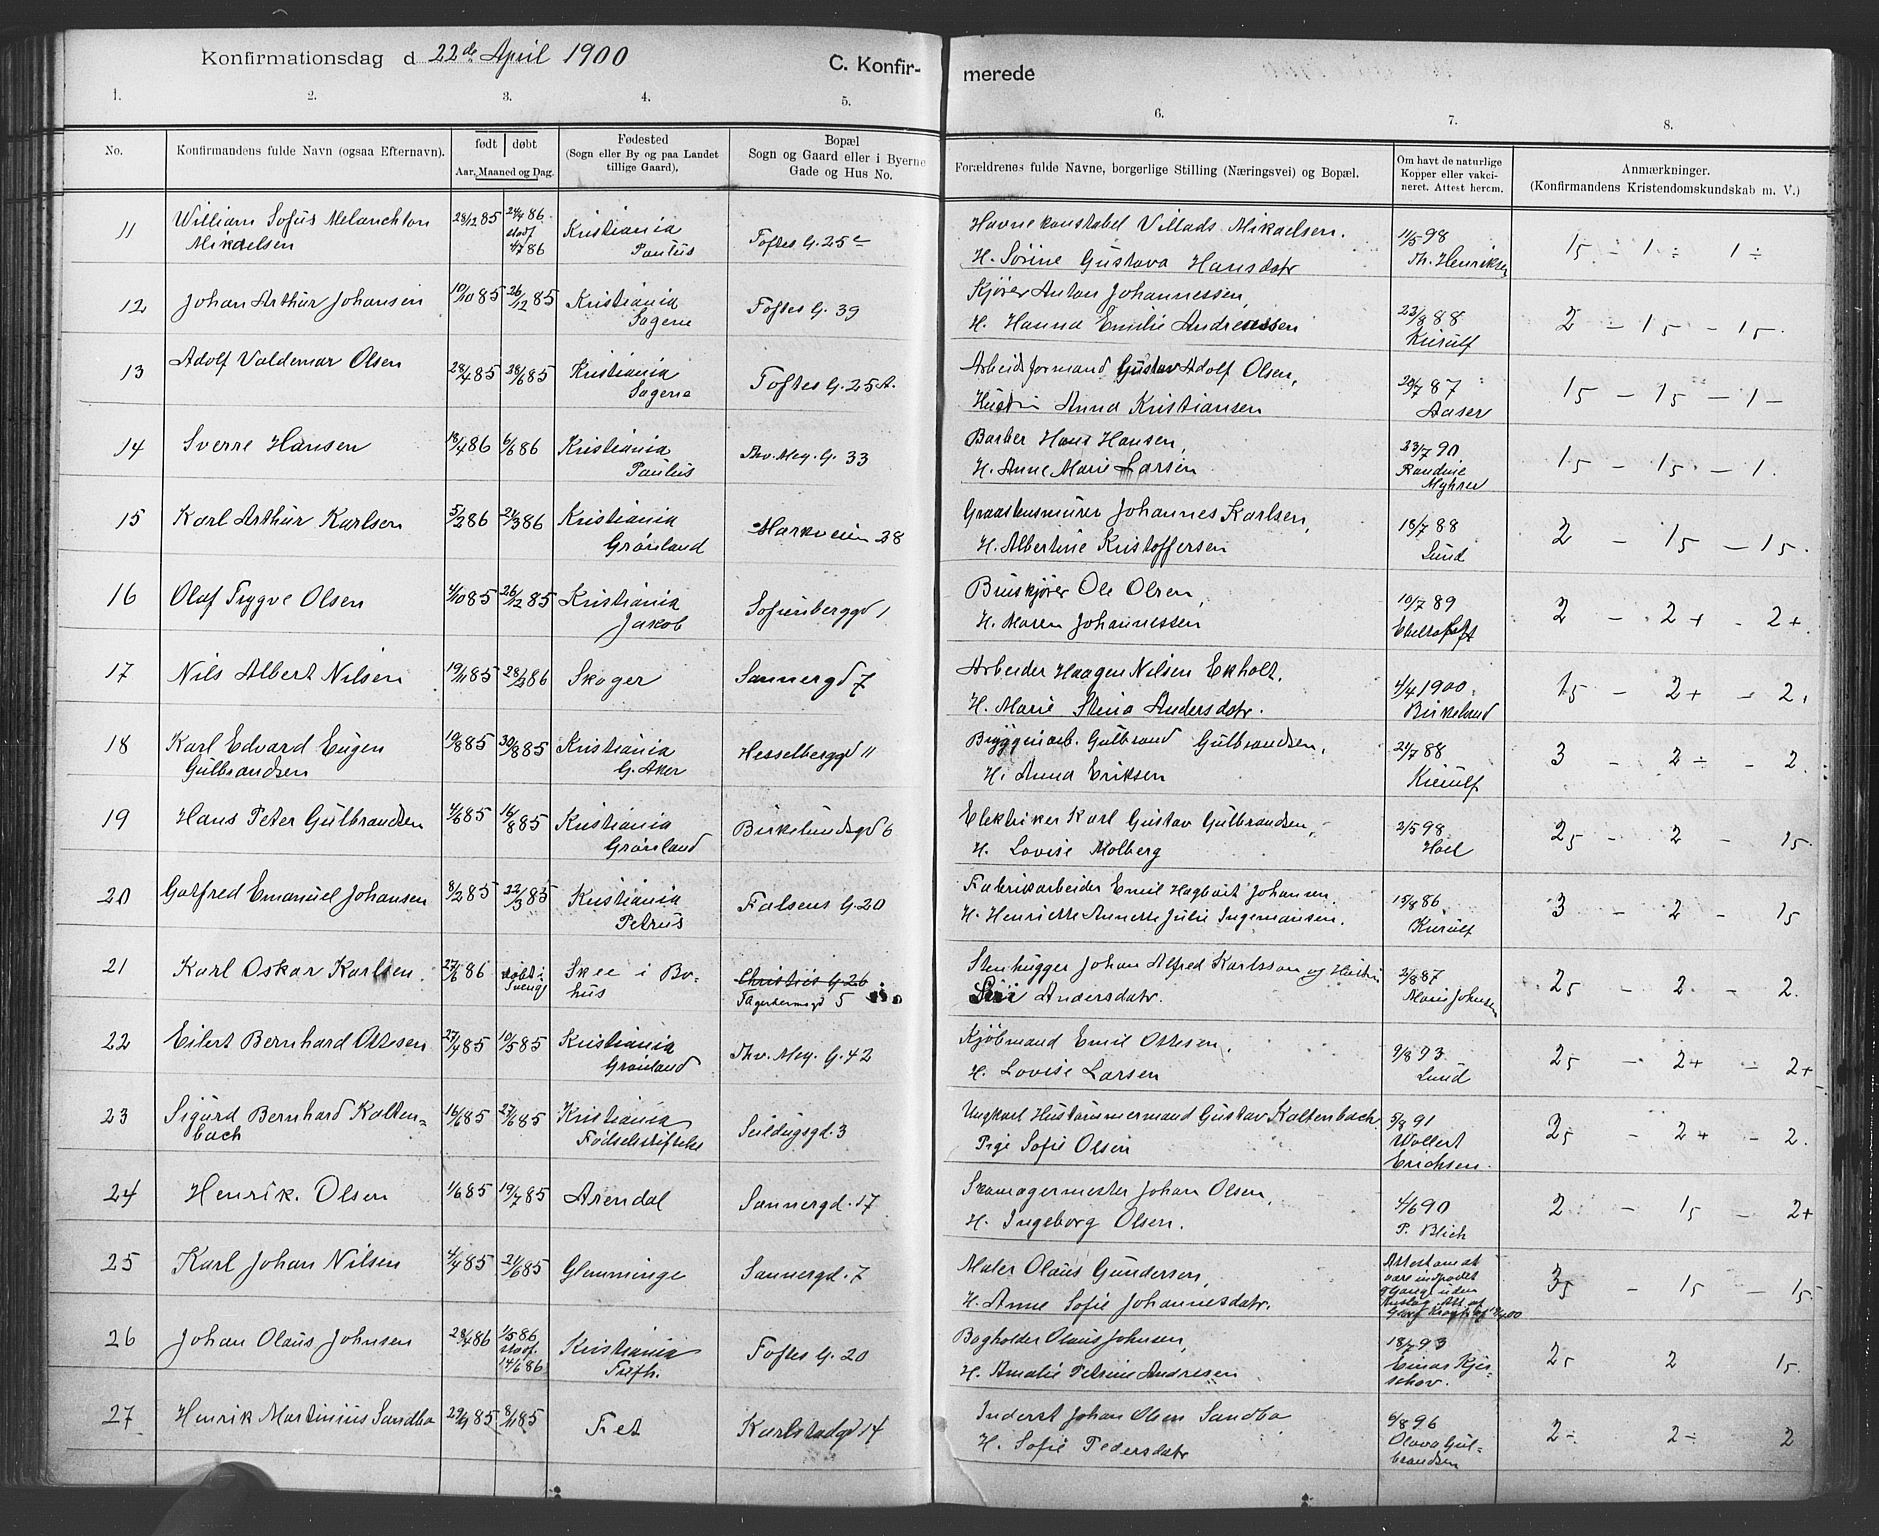 Konfirmationsdag d 22de April 1900 C. Konfir- merede
1. 2. 3. 4. 5. 6. 7. 8.
No. Konfirmandens fulde Navn (ogsaa Efternavn). født døbt Aar, Maaned og Dag. Fødested (Sogn eller By og paa Landet tillige Gaard). Bopæl Sogn og Gaard eller i Byerne Gade og Hus No. Forældrenes fulde Navne, borgerlige Stilling (Næringsvei) og Bopæl. Om havt de naturlige Kopper eller vakcineret. Attest herom. Anmærkninger. (Konfirmandens Kristendomskundskab m. V.)
11 William Sofus Melanchton Mikaelsen 28/12 85 Kristiania Paulus Toftes G. 25 c Havnekonstabel Villads Mikaelsen. H. Sørine Gustava Hansdatr 11/5 98 Th. Henriksen 15 - 1 ÷ 1 ÷
12 Johan Arthur Johansen 19/10 85 26/12 85 Kristiania Sagene Toftes G. 39 Kjører Anton Johannessen, H. Hanna Emilie Andreassen 23/8 88 Kierulf 2 - 15 - 15.
13 Adolf Valdemar Olsen 28/4 85 28/6 85 Kristiania Sagene Toftes G. 25 A. Arbeidsformand Gustav Adolf Olsen, Hustru Anna Kristiansen 20/7 87 Aaser 15 - 15 - 1 -
14 Sverre Hansen 18/4 86 6/6 86 Kristiania Paulus Thv. Mey. G. 33 Barber Hans Hansen, H. Anne Marie Larsen 23/7 90 Randine Myhrer 15 - 15 - 1
15 Karl Arthur Karlsen 5/2 86 21/3 86 Kristiania Grønland Markveien 28 Graastensmurer Johannes Karlsen, H. Albertine Kristoffersen 18/7 88 Lund 2 - 15 - 15.
16 Olaf Trygve Olsen 4/10 85 26/12 85 Kristiania Jakob Sofienberggd 1 Bruskjører Ole Olsen, H. Maren Johannessen 10/7 89 2 - 2+ - 2+.
17 Nils Albert Nilsen 19/11 85 28/2 86 Skoger Sannergd 7 Arbeider Haagen Nilsen Ekholt. H. Marie Stina Andersdatr. 4/4 1900. Birkeland 15 - 2+ - 2.
18 Karl Edvard Eugen Gulbrandsen 19/8 85 30/8 85 Kristiania G. Aker Hesselberggd 11 Bryggeriarb. Gulbrand Gulbrandsen, H. Anna Eriksen 21/7 88 Kierulf 3 - 2 ÷ - 2.
19 Hans Peter Gulbrandsen 4/6 85 16/8 85 Kristiania Grønland Birkelundsgd 6 Elektriker Karl Gustav Gulbrandsen, H. Lovise Molberg 2/5 98 Hoel 25 - 2 - 15.
20 Gotfred Emanuel Johansen 8/2 85 22/3 85 Kristiania Petrus Falsens G. 20 Fabrikarbeider Emil Hagbart Johansen. H. Henriette Annette Julie Ingemansen. 15/8 86 Kierulf 3 - 2 - 15
21 Karl Oskar Karlsen. 27/6 86 døbt i Sverige Skee i Bohus Christies G 26 5 Stenhugger Johan Alfred Karlsson og Hustru Andersdatr. 2/8 87 Marie Johnsen 25 - 2 - 2.
22 Eilert Bernhard Ottesen 27/4 85 10/5 85 Kristiania Grønland Thv. Mey. G. 42 Kjøbmand Emil Ottesen, H. Lovise Larsen 9/8 93 Lund 25 - 2+ - 2+
23 Sigurd Bernhard Koltenbach 16/6 85 27/6 85 Kristiania Fødselsstiftelse Seildugsgd. 3 Ungkarl Hustømmermand Gustav Koltenbach. Pige Sofie Olsen 5/8 91 Wollert Erichsen. 25 - 2+ - 2.
24 Henrik. Olsen 1/6 85 19/7 85 Arendal Sannergd. 17 Skomagermester Johan Olsen, H. Ingeborg Olsen. 4/6 90 P. Blich 2 - 15 - 2+
25 Karl Johan Nilsen 4/4 85 21/6 85 Glemminge Sannergd. 7 Maler Olaus Gundersen, H. Anne Sofie Johannesdatr. Attest om at være indpodet gange uden 35 - 15 - 15.
26 Johan Olaus Johnsen 28/4 86 1/5 86 14/6 86 Kristiania Trefh. Toftes G. 20 Bogholder Olaus Johnsen, H. Amalie Petrine Andresen 18/7 93 Einar Kjerschov. 25 2 15.
27 Henrik Martinius Sandbo 29/9 85 8/11 85 Fet Karlstadgd 14 Inderst Johan Olsen Sandbo H. Sofie Pedersdatr 6/8 96 Olava Gulbrandsen 2 ÷ 2 ÷ 2